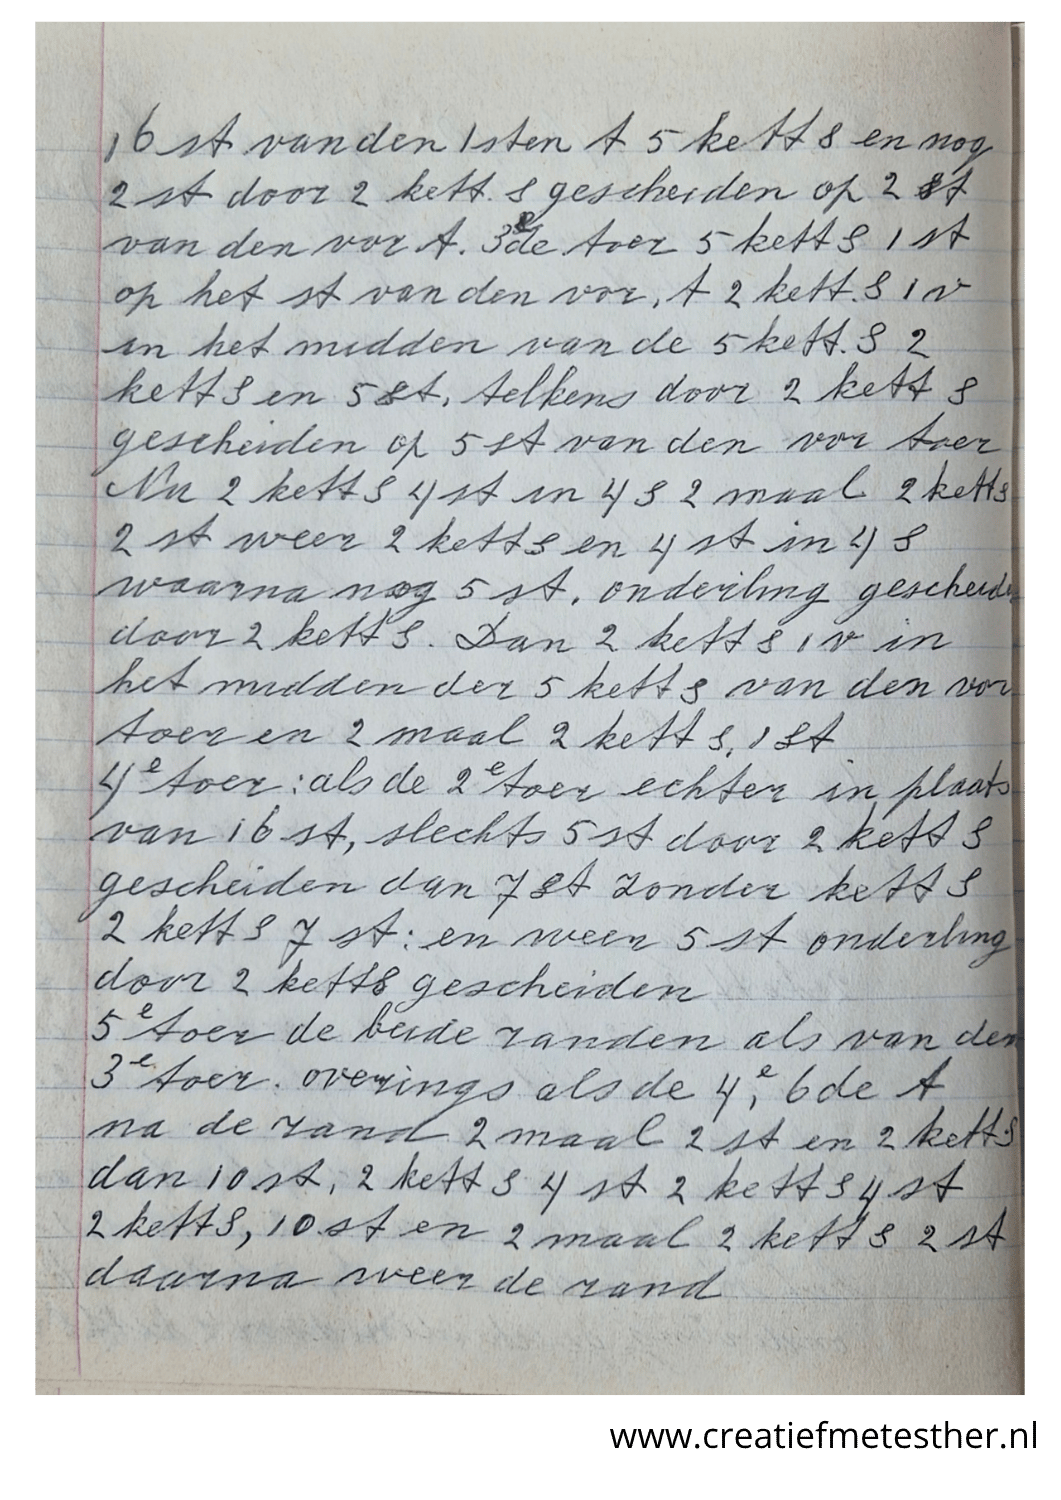 16 st van den 1sten t 5 kett S en nog
2 st door 2 kett. S gescheiden op 2 st
van den vor t. 3de toer 5 kett S 1 st
op het st van den vor, t 2 kett. S 1 v
in het midden van de 5 kett. S 2
kett S en 5 st, telkens door 2 kett S
gescheiden op 5 st van den vor toer
Nu 2 kett S 4 st in 4 S 2 maal 2 kett S
2 st weer 2 kett S en 4 st in 4 S
waarna nog 5 st, onderling gescheiden
door 2 kett S. Dan 2 kett S 1 v in
het midden der 5 kett S van den vor
toer en 2 maal 2 kett S, 1 st
4e toer: als de 2e toer echter in plaats
van 16 st, slechts 5 st door 2 kett S
gescheiden dan 7 st zonder kett S
2 kett S 7 st: en weer 5 st onderling
door 2 kett S gescheiden
5e toer de beide randen als van den
3e toer. overings als de 4e, 6de t
na de rand 2 maal 2 st en 2 kett S
dan 10 st, 2 kett S 4 st 2 kett S 4 st
2 kett S, 10 st en 2 maal 2 kett S 2 st
daarna weer de rand
www.creatiefmetesther.nl